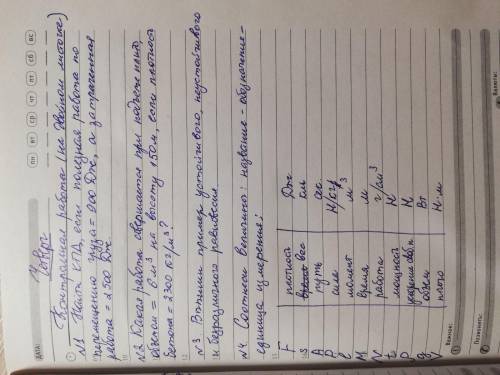 ДАТА:
пн вт ср чт пт сб вс
Контрольная работа (на двойном листочке)
№1 Найти КПД, если полезная работа по
перемещению груза = 900 Дж, а затраченная
работа = 2500 Дж.
№2 Какая работа совершается при подъеме плиты
объемом = 6 м³ на высоту 150 м, если плотность
бетона = 2300 кг/м³?
№3 Впишите пример устойчивого, неустойчивого
и безразличного равновесия
№4 Соотнеси величины: название - обозначение -
единица измерения:
F плотность Дж
S вес см
A путь
P сила Н/кг
l момент м³
M время м
N работа г/см³
t мощность Н
р Н
g объем Вт
V плечо Н·м
Важно:
Позвонить: